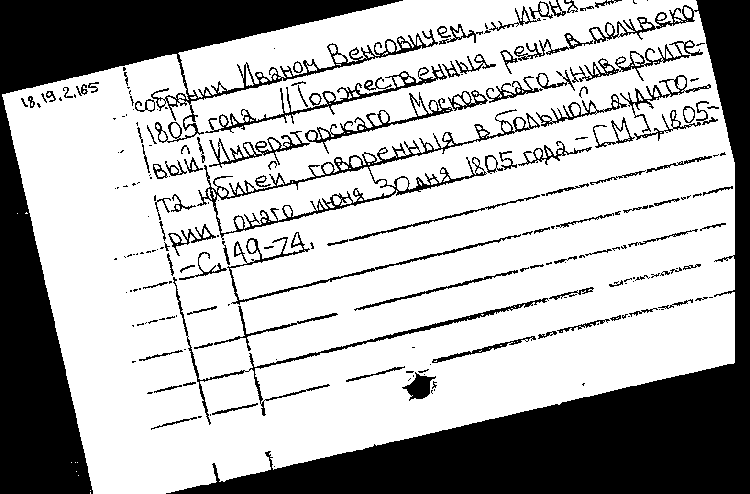 18.19.2.165
собрании Иваном Венсовичем, ... июня
1805 года. // Торжественныя речи в полувеко-
вый Императорскаго Московскаго университе-
та юбилей, говоренныя в большой аудито-
рии онаго июня 30 дня 1805 года. – [М.], 1805.
– С. 49-74.